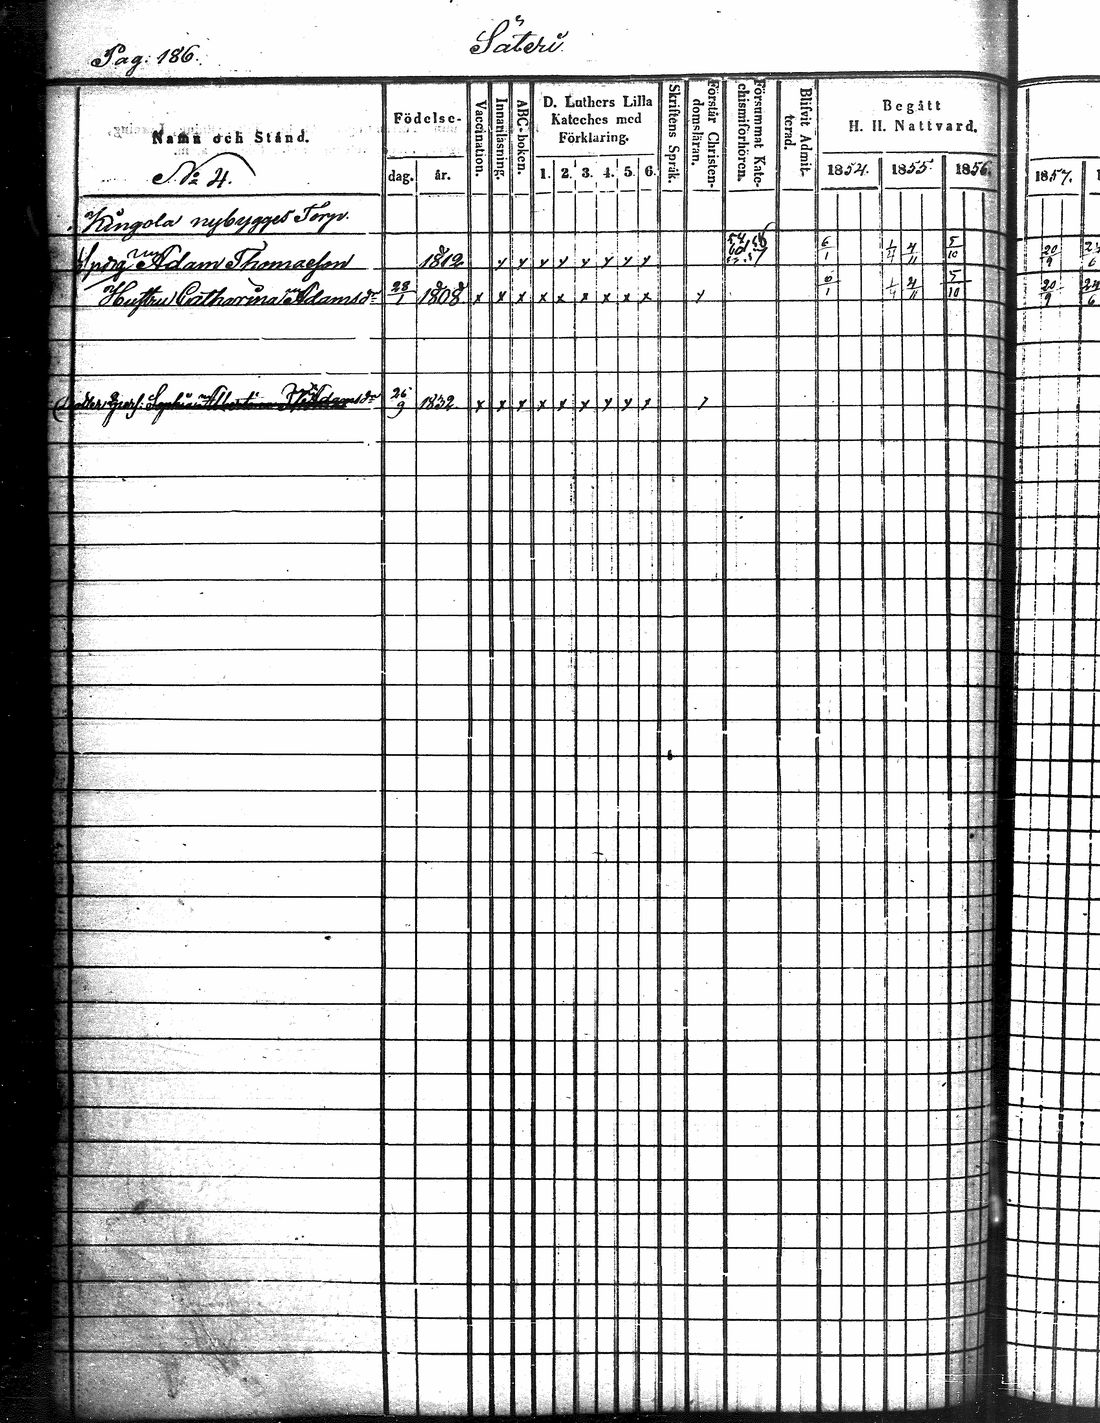 Pag. 186.
Säteri
Namn och Stånd.
Födelse-
dag.
år.
Vaccination.
Innanläsning.
ABC-boken.
D. Luthers Lilla
Kateches med
Förklaring.
1. 2. 3. 4. 5. 6.
Skriftens Språk.
Förstår Christen-
domsläran.
Försummat Kate-
chismiförhören.
Blifvit Admit-
terad.
Begått
H. H. Nattvard.
1854. 1855 1856. 1857.
No 4.
Kingola nybygges Torp.
Adam Thomaeson 1812 x x x x x x x x 6/1 4/11 5/10 20/9
Hustru Catharina Adamsdr 28/1 1808 x x x x x x x x x 6/1 4/11 5/10 20/9
Sophia Albertina 26/9 1832 x x x x x x x x x